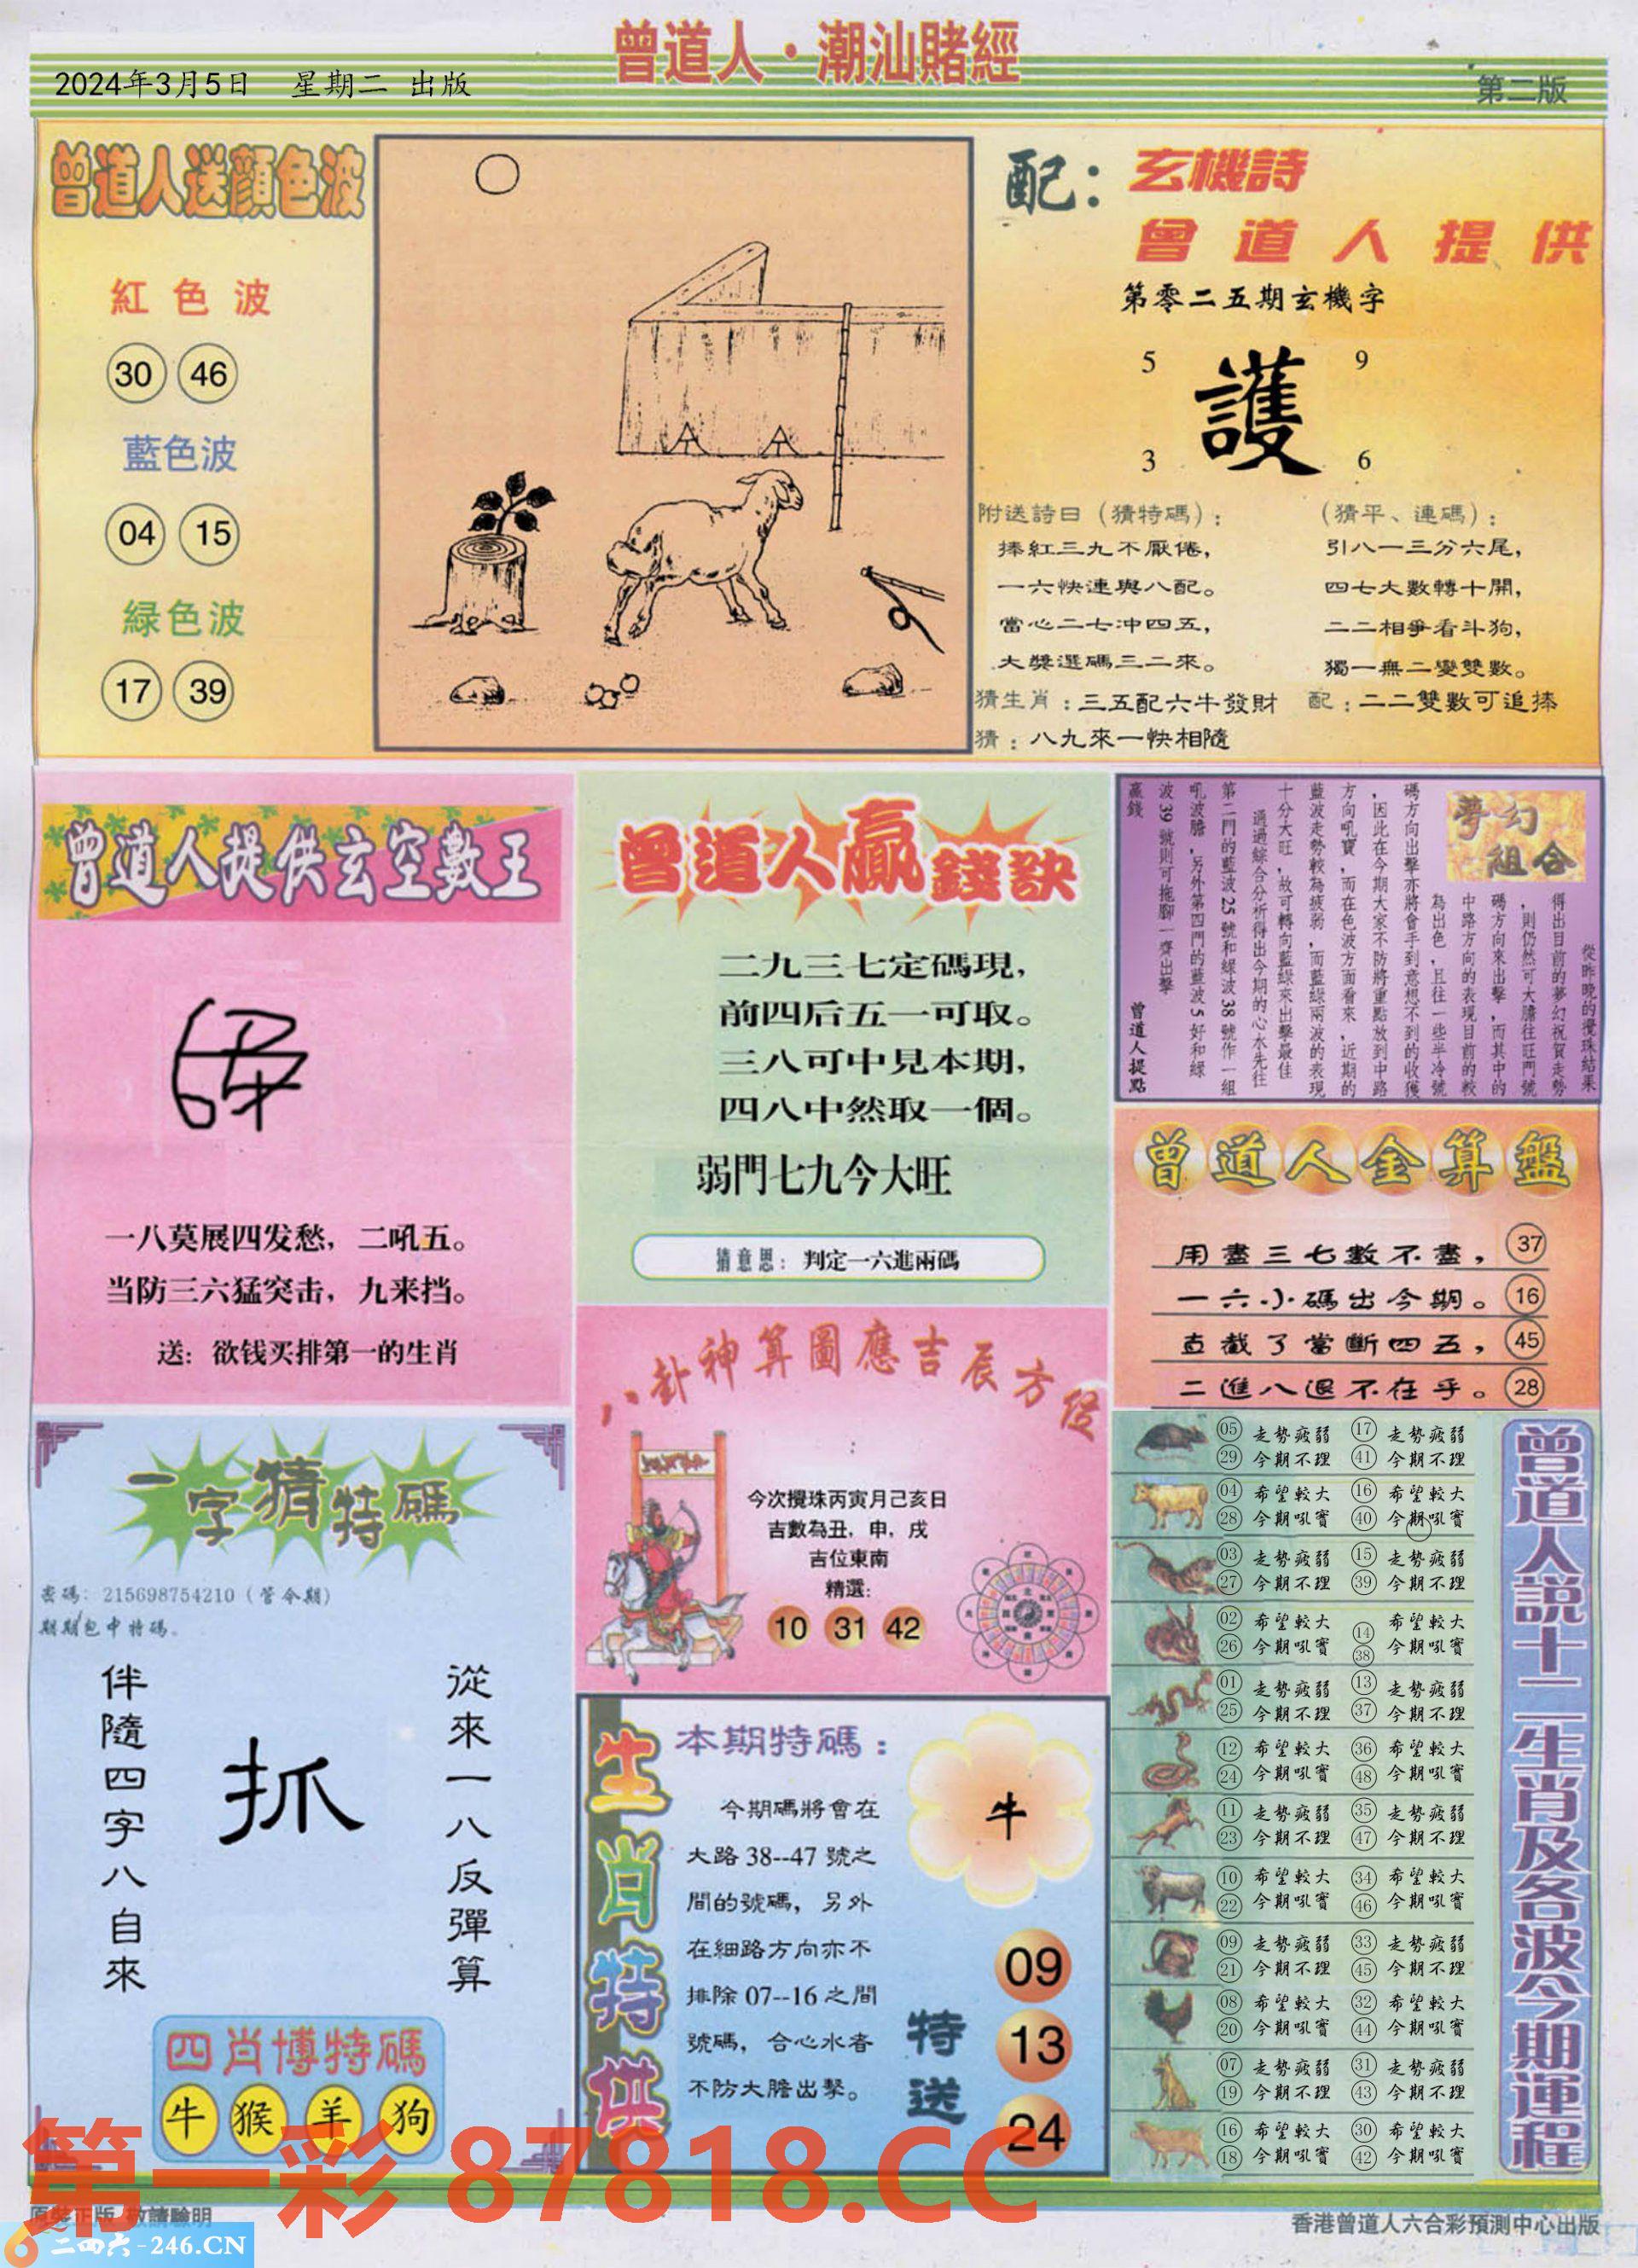 曾道人·潮汕賭經
2024年3月5日 星期二 出版
第二版
曾道人送顔色波
紅色波
30 46
藍色波
04 15
緑色波
17 39
配：玄機詩
曾道人提供
第零二五期玄機字
5 9
護
3 6
附送詩日（猜特碼）：
捧紅三九不厭倦，
一六快連與八配。
當心二七冲四五，
大獎選碼三二來。
（猜平、連碼）：
引八一三分六尾，
四七大數轉十開，
二二相爭看斗狗，
獨一無二變雙數。
猜生肖：三五配六牛發財
配：二二雙數可追捧
猜：八九來一快相隨
曾道人提供玄空數王
一八莫展四发愁，二吼五。
当防三六猛突击，九来挡。
送：欲钱买排第一的生肖
曾道人贏錢訣
二九三七定碼現，
前四后五一可取。
三八可中見本期，
四八中然取一個。
弱門七九今大旺
猜意思：判定一六進兩碼
夢幻
組合
從昨晚的攪珠結果
得出目前的夢幻祝賀走勢
，則仍然可大膽往旺門號
碼方向來出擊，而其中的
中路方向的表現目前的較
為出色，且往一些半冷號
碼方向出擊亦將會手到意想不到的收獲
，因此在今期大家不防將重點放到中路
方向吼寶，而在色波方面看來，近期的
藍波走勢較為疲弱，而藍綠兩波的表現
十分大旺，故可轉向藍綠來出擊最佳
通過綜合分析得出今期的心水先往
第二門的藍波25號和綠波38號作一組
吼波膽，另外第四門的藍波5好和綠
波39號則可拖腳一齊出擊
贏錢
曾道人提點
曾道人金算盤
用盡三七數不盡， 37
一六小碼出今期。 16
直截了當斷四五， 45
二進八退不在乎。 28
一字猜特碼
密碼：215698754210（管今期）
期期包中特碼。
從來一八反彈算
抓
伴隨四字八自來
四肖博特碼
牛 猴 羊 狗
八卦神算圖應吉辰方位
今次攪珠丙寅月己亥日
吉數為丑，申，戌
吉位東南
精選：
10 31 42
生肖特供
本期特碼：
今期碼將會在
大路 38--47 號之
間的號碼，另外
在細路方向亦不
排除 07--16 之間
號碼，合心水者
不防大膽出擊。
牛
特送
09
13
24
曾道人說十二生肖及各波今期運程
05 走勢疲弱 17 走勢疲弱
29 今期不理 41 今期不理
04 希望較大 16 希望較大
28 今期吼寶 40 今期吼寶
03 走勢疲弱 15 走勢疲弱
27 今期不理 39 今期不理
02 希望較大 14 希望較大
26 今期吼寶 38 今期吼寶
01 走勢疲弱 13 走勢疲弱
25 今期不理 37 今期不理
12 希望較大 36 希望較大
24 今期吼寶 48 今期吼寶
11 走勢疲弱 35 走勢疲弱
23 今期不理 47 今期不理
10 希望較大 34 希望較大
22 今期吼寶 46 今期吼寶
09 走勢疲弱 33 走勢疲弱
21 今期不理 45 今期不理
08 希望較大 32 希望較大
20 今期吼寶 44 今期吼寶
07 走勢疲弱 31 走勢疲弱
19 今期不理 43 今期不理
16 希望較大 30 希望較大
18 今期吼寶 42 今期吼寶
第一彩 87818.CC
原裝正版 敬請驗明
二四六-246.CN
香港曾道人六合彩預測中心出版